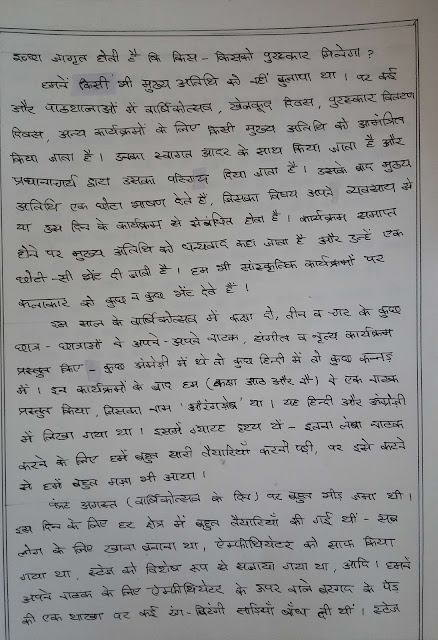 इच्छा जागृत होती है कि किस - किसको पुरस्कार मिलेगा ?
हमने किसी भी मुख्य अतिथि को नहीं बुलाया था । पर कई
और पाठशालाओं में वार्षिकोत्सव, खेलकूद दिवस, पुरस्कार वितरण
दिवस, अन्य कार्यक्रमों के लिए किसी मुख्य अतिथि को आमंत्रित
किया जाता है । उनका स्वागत आदर के साथ किया जाता है और
प्रधानाचार्य द्वारा उसका परिचय दिया जाता है । उसके बाद मुख्य
अतिथि एक छोटा भाषण देते हैं, जिसका विषय अपने व्यवसाय से
या उस दिन के कार्यक्रम से संबंधित होता है । कार्यक्रम समाप्त
होने पर मुख्य अतिथि को धन्यवाद कहा जाता है और उन्हें एक
छोटी - सी भेंट दी जाती है । हम भी सांस्कृतिक कार्यक्रमों पर
कलाकार को कुछ न कुछ भेंट देते हैं ।
इस साल के वार्षिकोत्सव में कक्षा दो, तीन व चार के कुछ
छात्र - छात्राओं ने अपने - अपने नाटक, संगीत व नृत्य कार्यक्रम
प्रस्तुत किए - कुछ अंग्रेज़ी में थे तो कुछ हिन्दी में तो कुछ कन्नड़
में । इन कार्यक्रमों के बाद हम (कक्षा आठ और नौ) ने एक नाटक
प्रस्तुत किया, जिसका नाम 'औरंगज़ेब' था । यह हिन्दी और अंग्रेज़ी
में लिखा गया था । इसमें ग्यारह दृश्य थे - इतना लंबा नाटक
करने के लिए हमें बहुत सारी तैयारियाँ करनी पड़ी, पर इसे करने
से हमें बहुत मज़ा भी आया ।
अगस्त (वार्षिकोत्सव के दिन) पर बहुत भीड़ जमा थी ।
इस दिन के लिए हर क्षेत्र में बहुत तैयारियाँ की गई थीं - सब
लोग के लिए खाना बनाना था, ऐम्फीथियेटर को साफ़ किया
गया था, स्टेज को विशेष रूप से सजाया गया था, आदि । हमने
अपने नाटक के लिए ऐम्फीथियेटर के ऊपर वाले बरगद के पेड़
की एक शाखा पर कई रंग - बिरंगी साड़ियाँ बाँध दी थीं । स्टेज